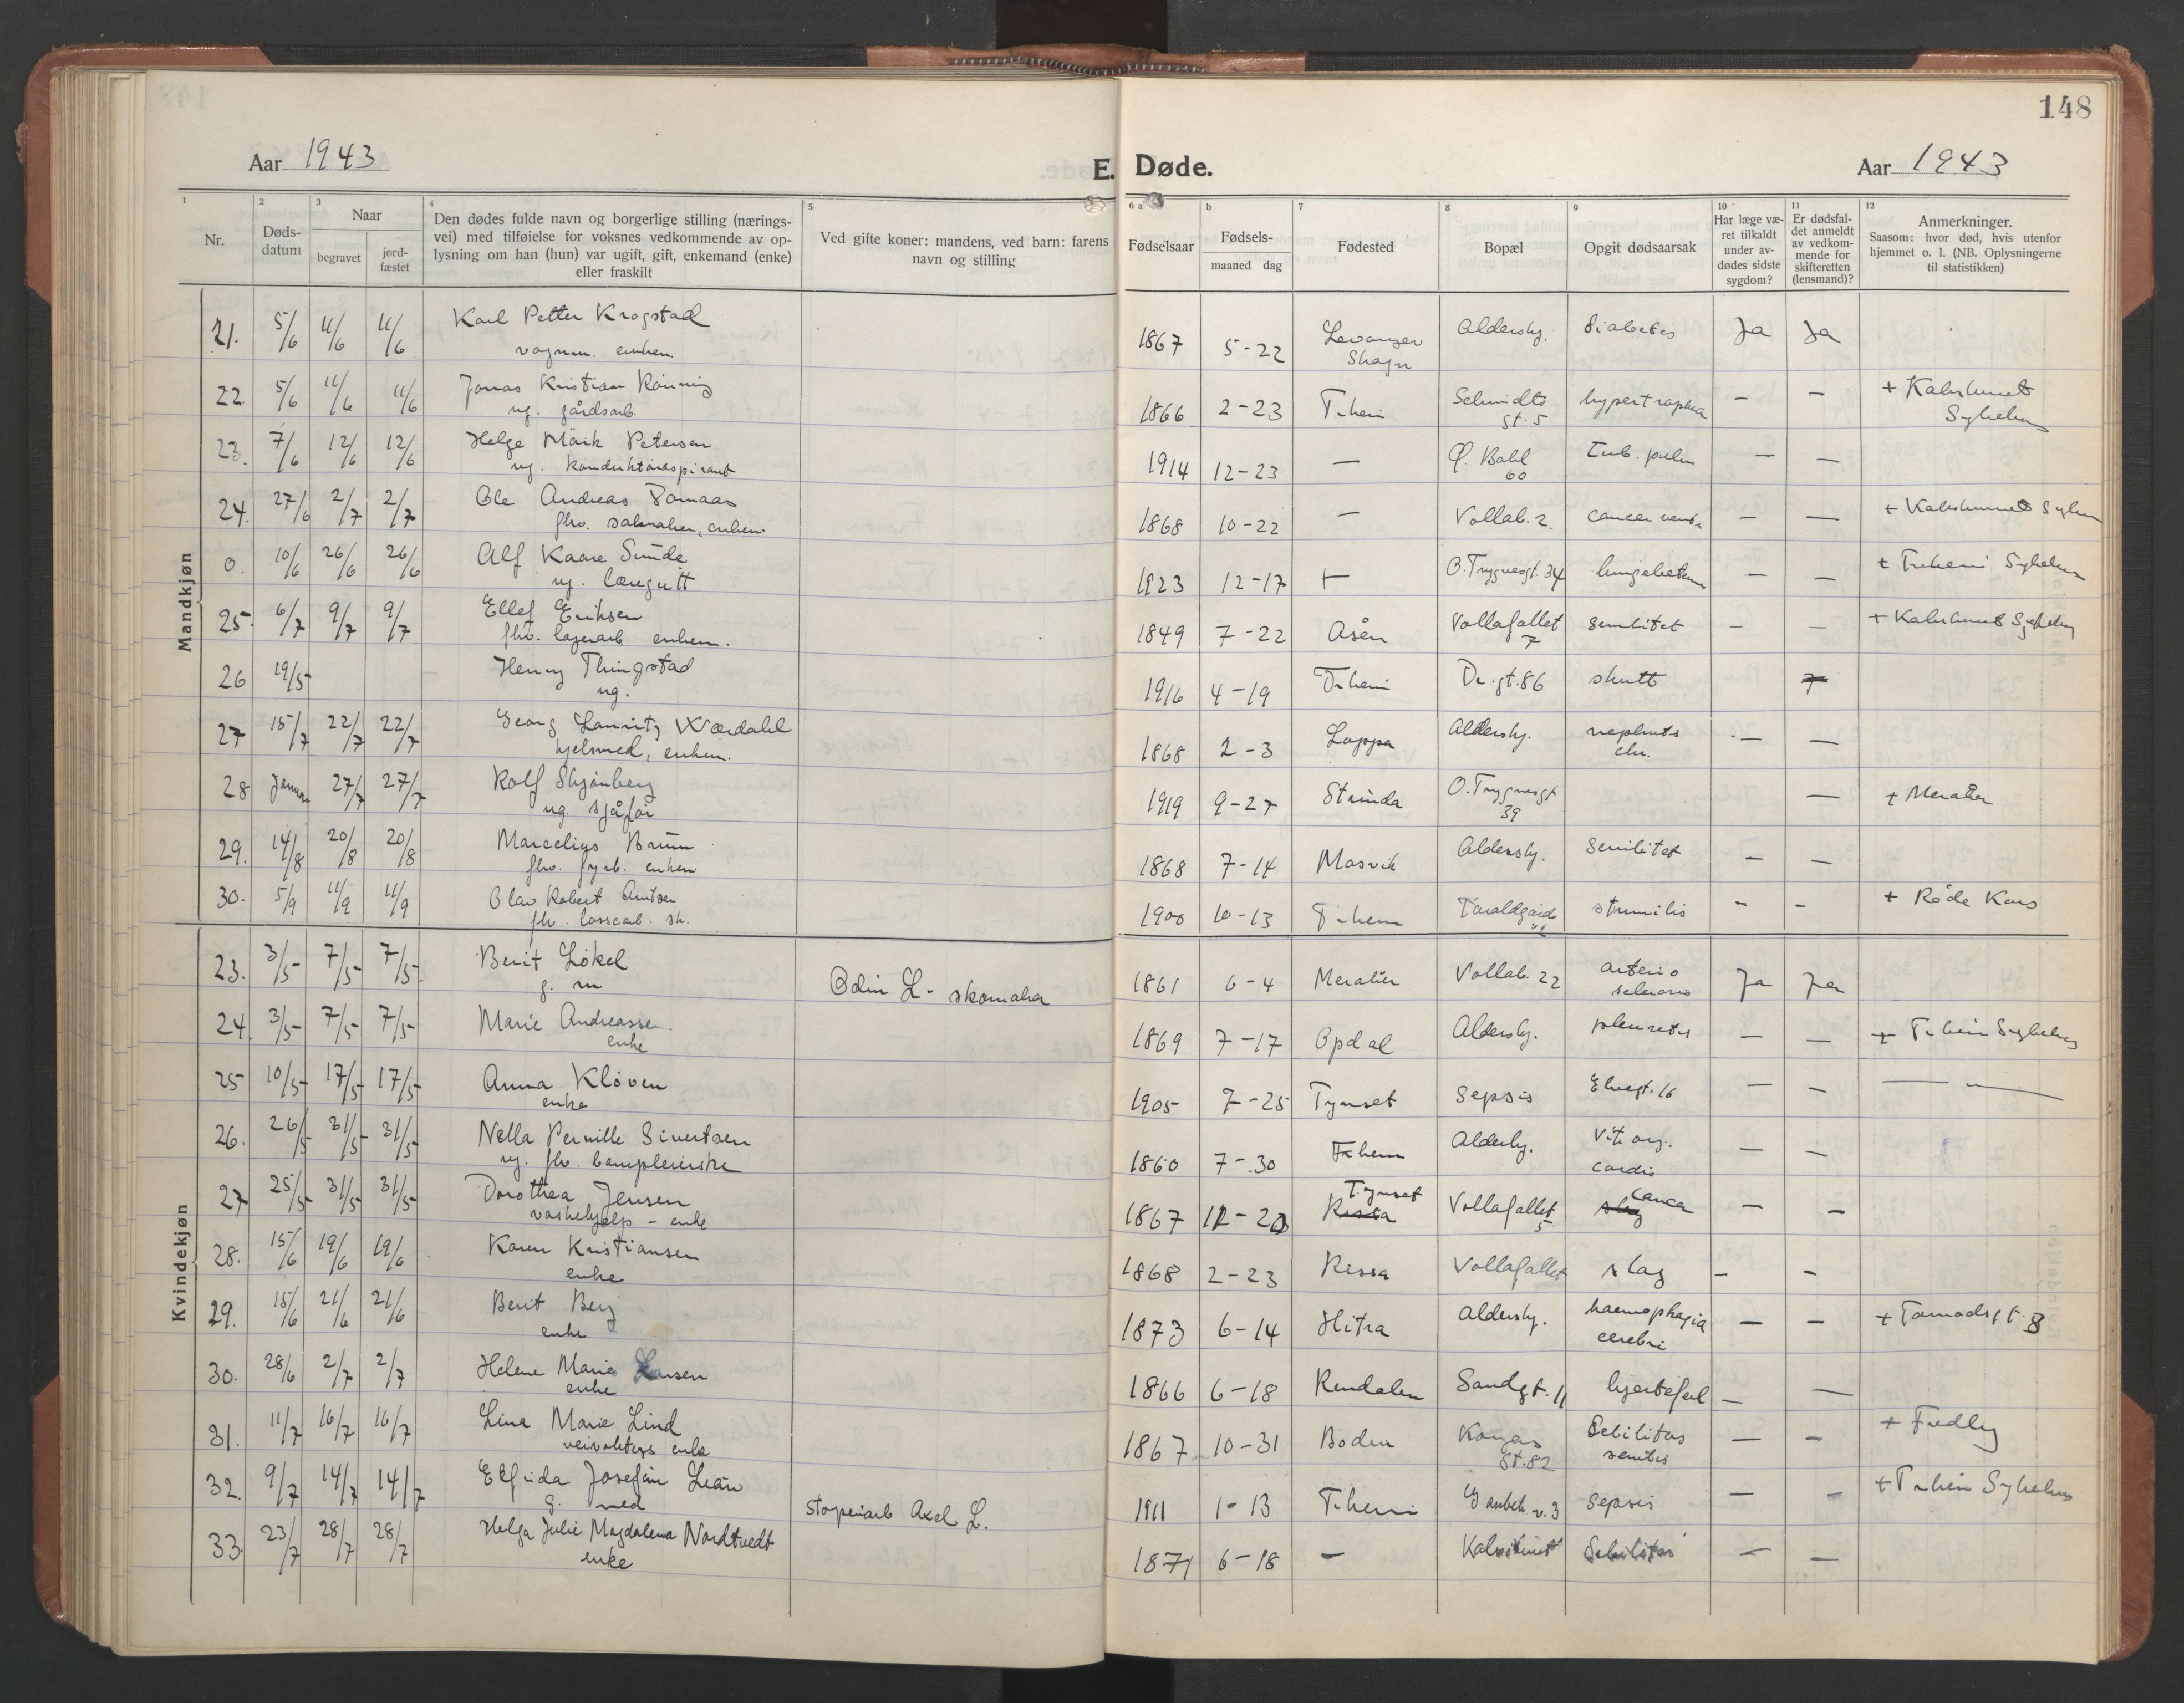 148
Aar 1943
E. Døde.
Aar 1943
1 2 3 4 5 6 a b 7 8 9 10 11 12
Nr.
Dødsdatum
Naar
begravet
jordfæstet
Den dødes fulde navn og borgerlige stilling (næringsvei) med tilføielse for voksnes vedkommende av oplysning om han (hun) var ugift, gift, enkemand (enke) eller fraskilt
Ved gifte koner: mandens, ved barn: farens navn og stilling
Fødselsaar
Fødsels-
maaned dag
Fødested
Bopæl
Opgit dødsaarsak
Har læge været tilkaldt under avdødes sidste sygdom?
Er dødsfaldet anmeldt av vedkommende for skifteretten (lensmand)?
Anmerkninger.
Saasom: hvor død, hvis utenfor hjemmet o. l. (NB. Oplysningerne til statistikken)
Mandkjøn
21. 5/6 11/6 11/6 Karl Petter Kragstad 1867 5-22 Levanger Aldershj. diabetes Ja Ja
vognm. enkem. Skogn
22. 5/6 11/6 11/6 Jonas Kristian Rönning 1866 2-23 T.heim Schmidts hypertrophia — — +
ug. gårdsarb. gt. 5 Sykehus
23. 7/6 12/6 12/6 Helge Mörk Petersen 1914 12-23 — Ø. Bakl tub. pulm — —
ug. konduktöraspirant 60
24. 27/6 2/7 2/7 Ole Andreas Tomaas 1868 10-22 — Vollab. 2. cancer ventr — — +
fhv. salmaker, enkem.
0. 10/6 26/6 26/6 Alf Kaare Sunde 1923 12-17 — O. Trygvesgt. 34 — — + Tr.heim Sykehus
ug. læregutt
25. 6/7 9/7 9/7 Ellef Eriksen 1849 7-22 Åsen Vollafallet senilitet — — +
fhv. lagerarb enkem. 7
26 19/5 Henry Thingstad 1916 4-19 Tr.heim Dr. gt. 86 skutt
ug.
27 15/7 22/7 22/7 Georg Lauritz Wærdahl 1868 2-3 Loppa Aldershj. nephritis — —
hjelsmed, enkem. chr.
28 Januar 27/7 27/7 Rolf Skjönberg 1919 9-27 Strinda O. Trygvesgt — + Meråker
ug. sjåför 39
29. 14/8 20/8 20/8 Marcelius Bruun 1868 7-14 Masvik Aldershj. senilitet — —
fhv. fyrb. enkem
30. 5/9 11/9 11/9 Olav Robert Arntsen 1900 10-13 T.heim — — + Röde Kors
fhv. lossearb.
Kvindekjøn
23. 3/5 7/5 7/5 Berit Lökel Odin L- skomaker 1861 6-4 Meråker Vollab. 22 arterio Ja Ja
g. m sclerosis
24. 3/5 7/5 7/5 Marie Andreassen. 1869 7-17 Opdal Aldershj. — — + T.heim Sykehus
enke
25 10/5 17/5 17/5 Anna Klöven 1905 7-25 Tynset Sepsis Elvegt. 16 — — — —
enke
26. 26/5 31/5 31/5 Nella Pernille Sivertsen 1860 7-30 Tr.heim Aldershj. Vit. org. — —
ug. fhv. cordis
27 25/5 31/5 31/5 Dorothea Jensen 1867 Tynset Rissa Vollafallet slag cancer — —
vaskehjelp – enke 5
28. 15/6 19/6 19/6 Karen Kristiansen 1868 2-23 Rissa Vollafallet slag — —
enke
29. 15/6 21/6 21/6 Berit Berg 1873 6-14 Hitra Aldershj. — —
enke cerebri
30. 28/6 2/7 2/7 Helene Marie 1866 6-18 Rendalen Sandgt. 11 hjertefeil — —
enke
31. 11/7 16/7 16/7 Lina Marie Lind 1867 10-31 Bodin Kongs Debilitas — — + Fredly
enke gt. 82 senilis
32. 9/7 14/7 14/7 Elfrida Josefine stoperiarb Axel L. 1911 1-13 T.heim v. 3 sepsis — — + Tr.heim Sykehus
g. med
33. 23/7 28/7 28/7 Helga Julie Magdalena Nordtvedt 1871 6-18 — Debilitas — —
enke